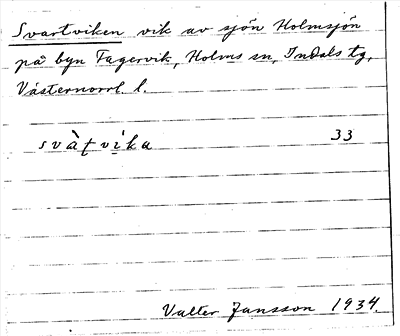 Svartviken vik av sjön Holmsjön
på byn Fagervik, Holms sn, Indals tg,
Västernorrl l.
svàʈvìka 33
Valter Jansson 1934.